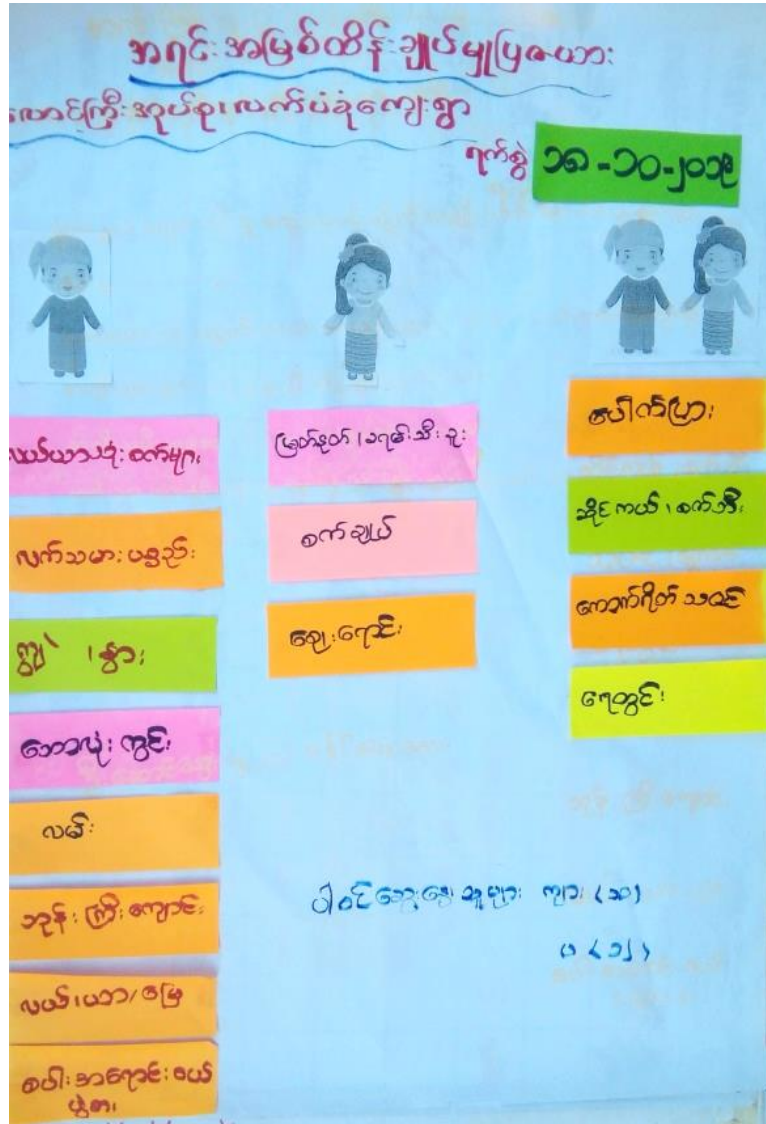 အရင်းအမြစ်ထိန်းချုပ်မှုပြဇယား
လောင်ကြီးအုပ်စု၊လက်ပံခုံကျေးရွာ
ရက်စွဲ ၁၈-၁၀-၂၀၁၉
လယ်ယာသုံးစက်များ
လက်သမားပစ္စည်း
ကျွဲ ၊နွား
ဘောလုံးကွင်း
လမ်း
ဘုန်းကြီးကျောင်း
လယ်၊ယာ/မြေ
စပါးအရောင်းဝယ်
ပွဲစား
မြတ်နုတ်၊ခရမ်းသီးခူး
စက်ချုပ်
ဈေးရောင်း
ပေါက်ပြား
ဆိုင်ကယ်၊စက်ဘီး
ကောက်ရိတ်သမင်
ရေတွင်း
ပါဝင်ဆွေးနွေးသူများ ကျား (၁၀)
မ (၁၂)